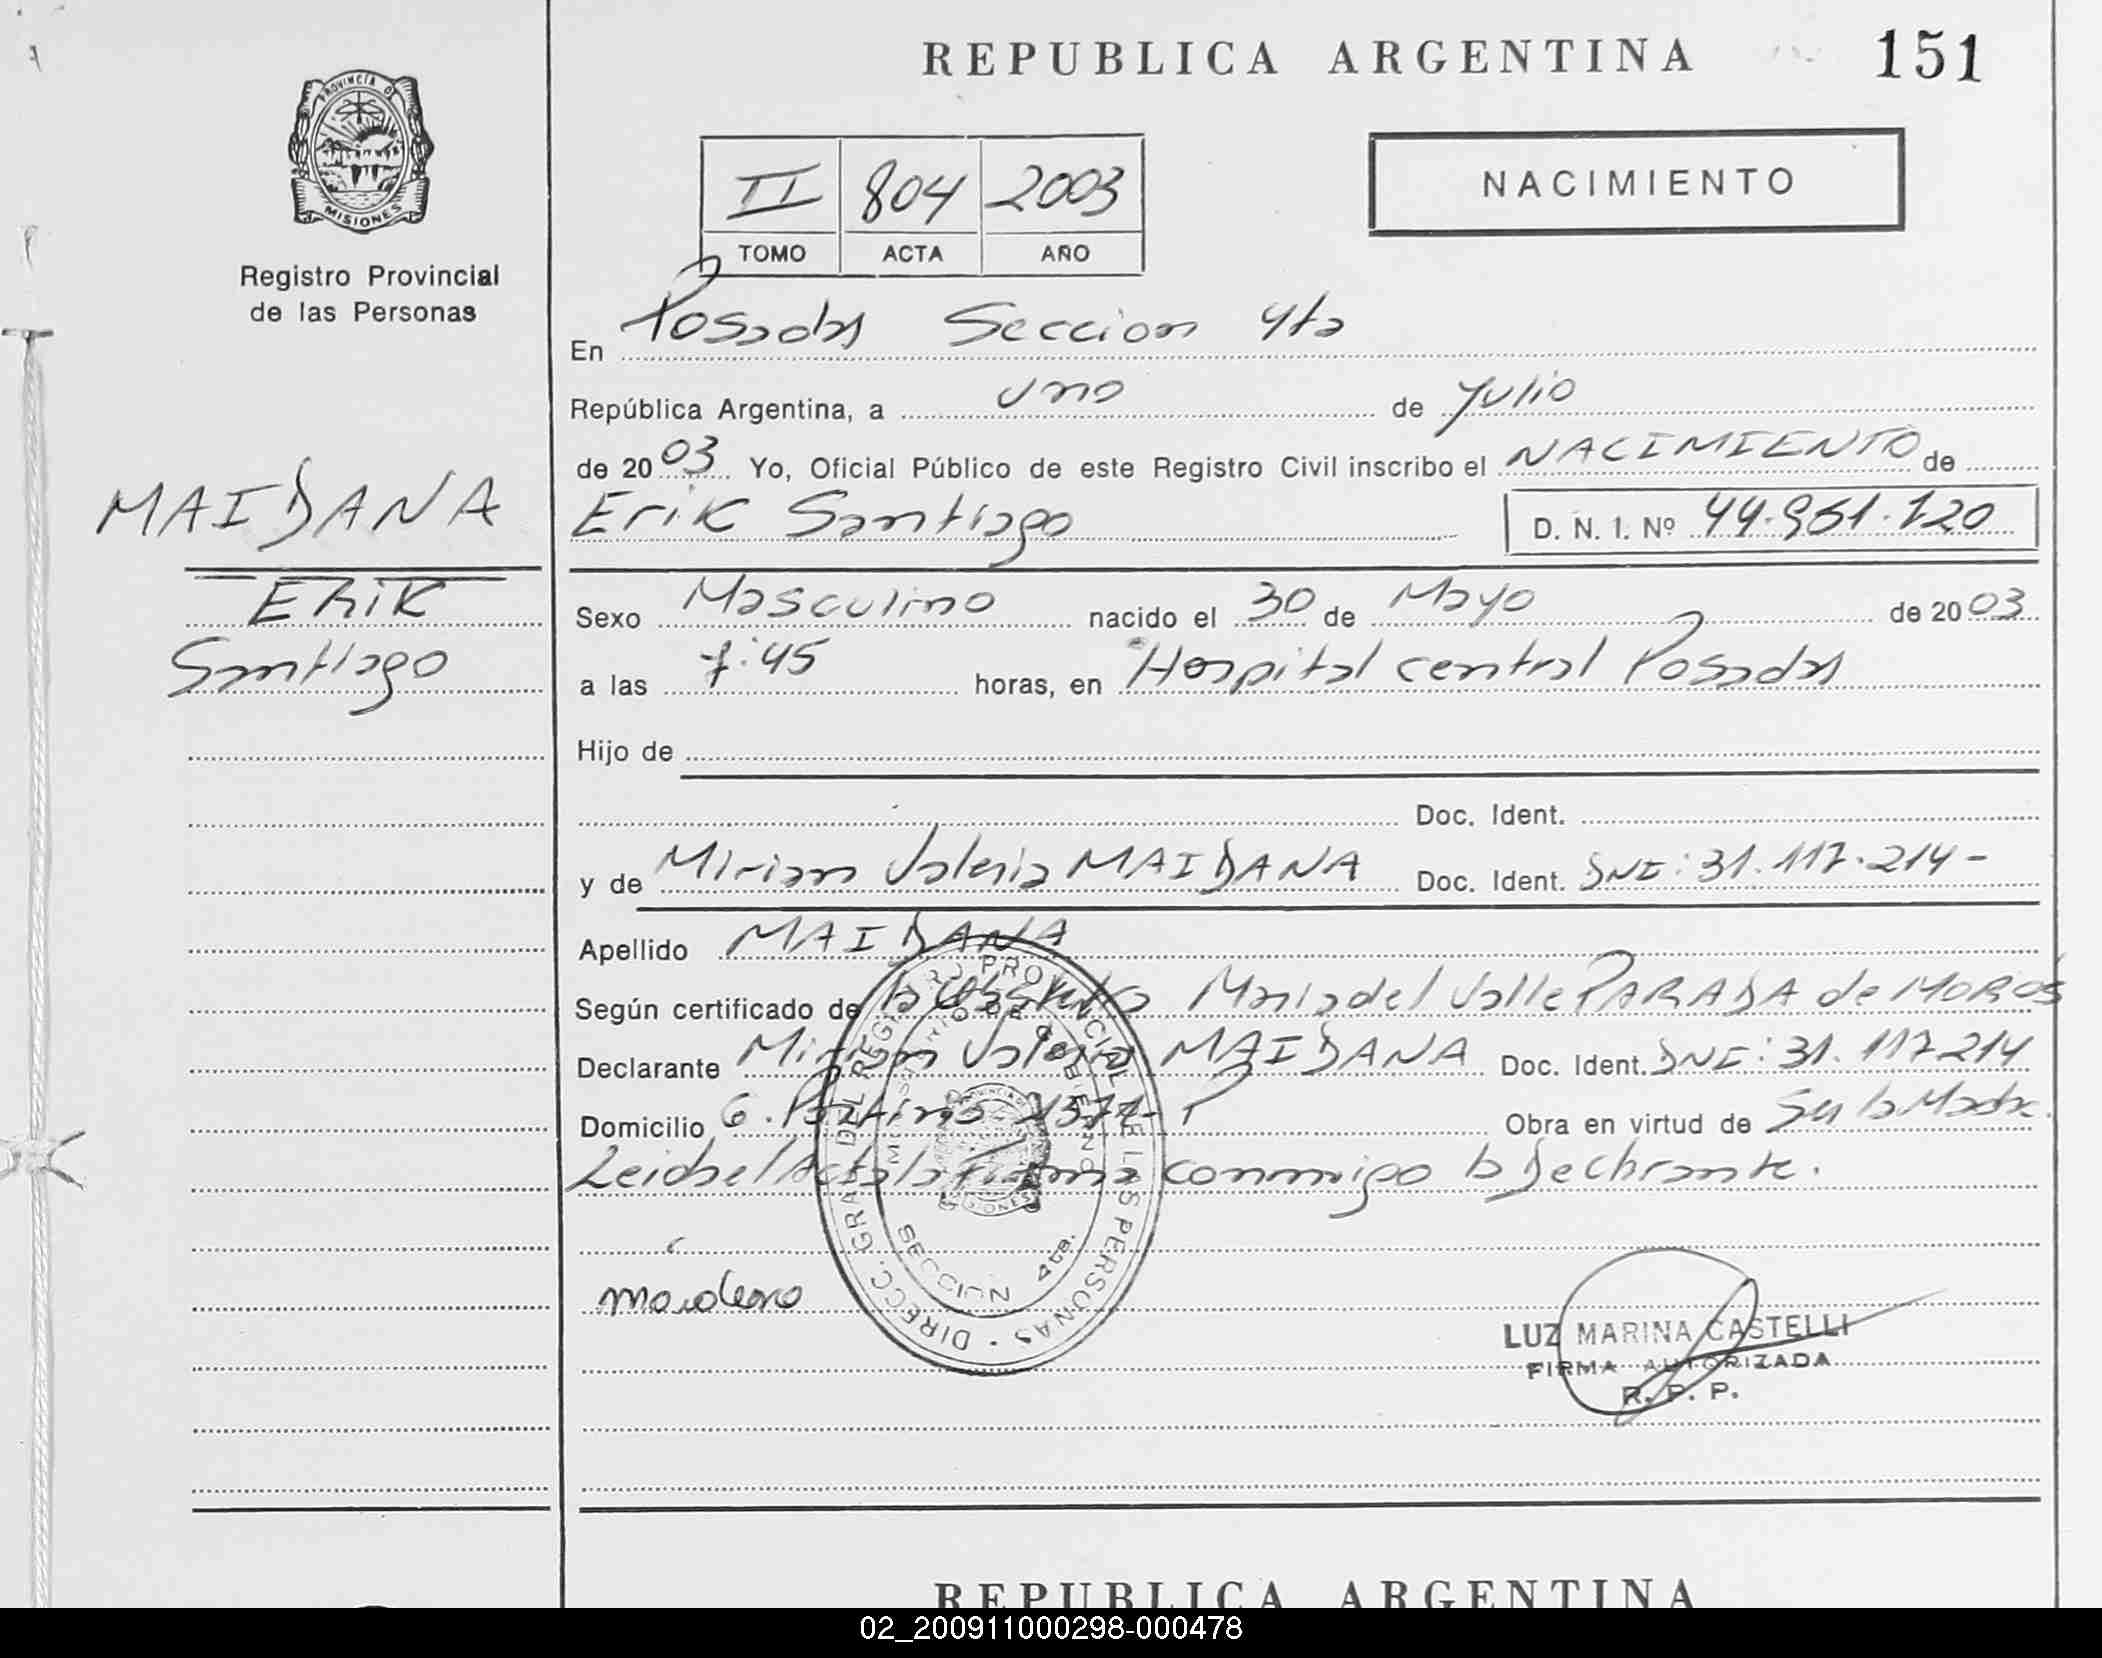 REPUBLICA ARGENTINA 151
PROVINCIA DE
MISIONES
Registro Provincial
de las Personas
II 804 2003
TOMO ACTA AÑO
NACIMIENTO
En Posadas Seccion 4ta
República Argentina, a uno de Julio
de 2003 Yo, Oficial Público de este Registro Civil inscribo el NACIMIENTO de
Erik Santiago D. N. I. Nº 44.961.720
MAIDANA
Erik
Santiago
Sexo Masculino nacido el 30 de Mayo de 2003
a las 7:45 horas, en Hospital central Posadas
Hijo de
Doc. Ident.
y de Miriam Valeria MAIDANA Doc. Ident. DNI: 31.117.214-
Apellido MAIDANA
Según certificado de la Obstetra Maria del Valle PARADA de MOROS
Declarante Miriam Valeria MAIDANA Doc. Ident. DNI: 31.117214
Domicilio Obra en virtud de Ser la Madre.
Leida el Acta la Firma conmigo la Declarante.
DIRECC. GRAL. DEL REGISTRO PROVINCIAL DE LAS PERSONAS
SECCION 4ta.
LUZ MARINA CASTELLI
FIRMA AUTORIZADA
R. P. P.
REPUBLICA ARGENTINA
02_200911000298-000478